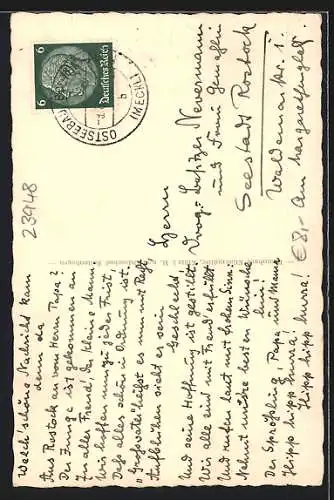 6
6
Deutsches Reich
OSTSEEBAD
(MECKL)
b
23948
€8,-
Herrn
Drog.-Besitzer Nevermann
und Frau Gemahlin
Seestadt Rostock
Waldemarstr. 1.
Am Margaretenplatz.
Welch schöne Nachricht kam
denn da
Aus Rostock an vom Herrn Papa?
Der Junge ist gekommen an
In aller Freud', der kleine Mann.
Wir hoffen nun zu jeder Frist,
Dass alles schön in Ordnung ist.
„Grossvater" heisst es nun mit Recht
Aufblühen sieht er sein
Geschlecht
Und seine Hoffnung ist gestillt
Wir alle sind mit Freud' erfüllt
Und rufen laut mit frohem Sinn:
Nehmt unsre besten Wünsche
hin!
Der Sprössling, Papa und Mama
Hipp hipp hurra!
Hipp hipp hurra!